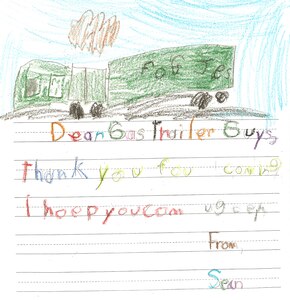 Dear Gas Trailer Guys,
Thank you fou coming
I hoep you com
From,
Sean